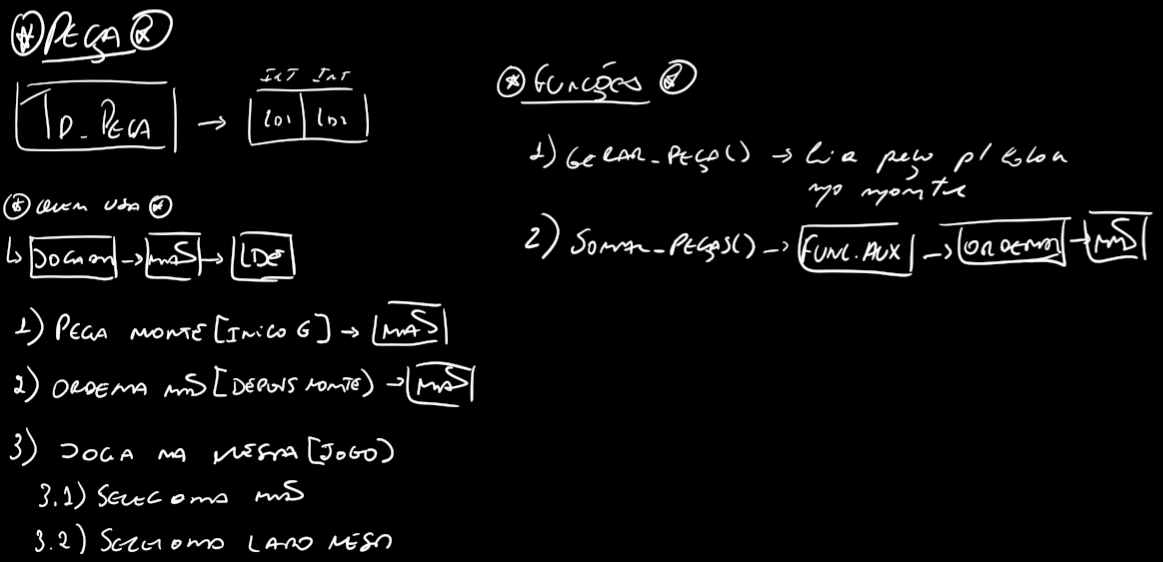 PEÇA
INT INT
TD_PECA → LD1 LD2
QUEM USA
JOGADOR → MÃO → LDE
1) PEGA MONTE [INICO 6] → MÃO
2) ORDENA MÃO [DEPOIS MONTE) → MÃO
3) JOGA NA MESA [JOGO)
3.1) SELECIONA MÃO
3.2) SELECIONA LADO MESA
FUNÇÕES
1) GERAR_PEÇA() → Cria peça p/ coloca
no monte
2) SOMAR_PEÇAS() → FUNC. AUX → ORDENAR → MÃO